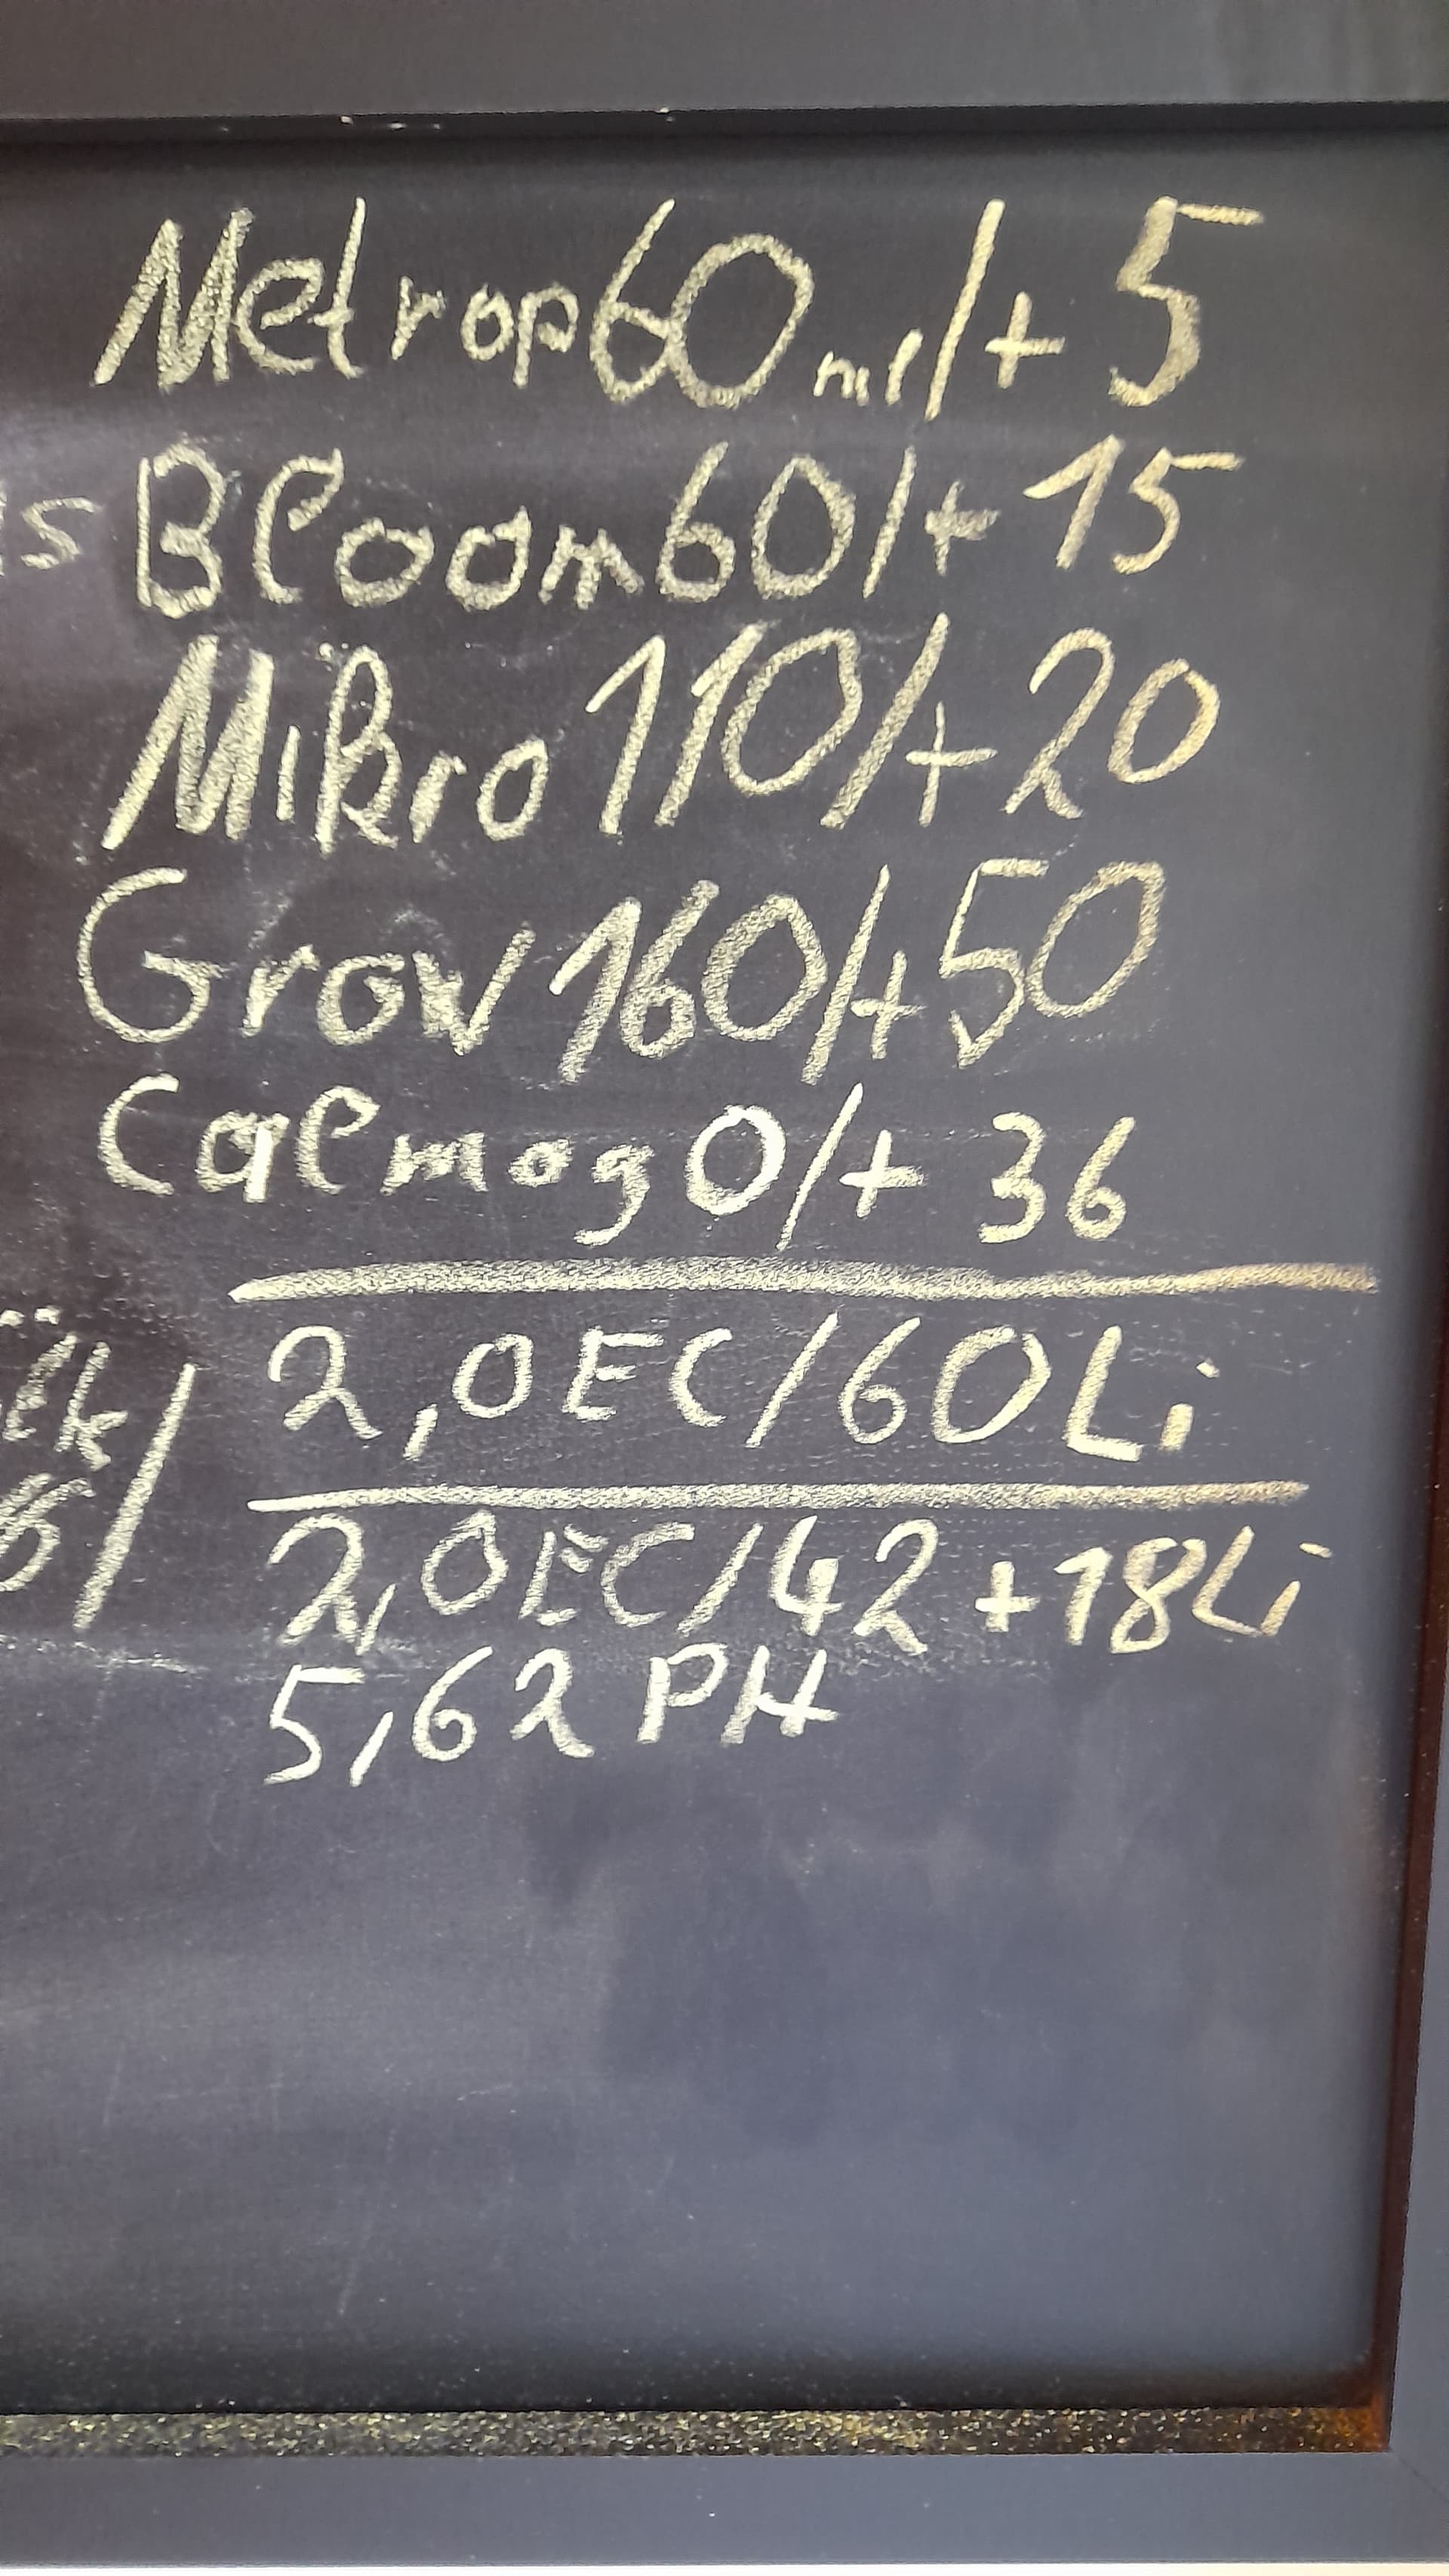 Metrop 60 ml/+ 5
Bloom 60/+ 15
Mikro 110/+ 20
Grow 160/+ 50
Calmag 0/+ 36
2,0 EC/60 Li
2,0 EC/42 +18 Li
5,62 PH